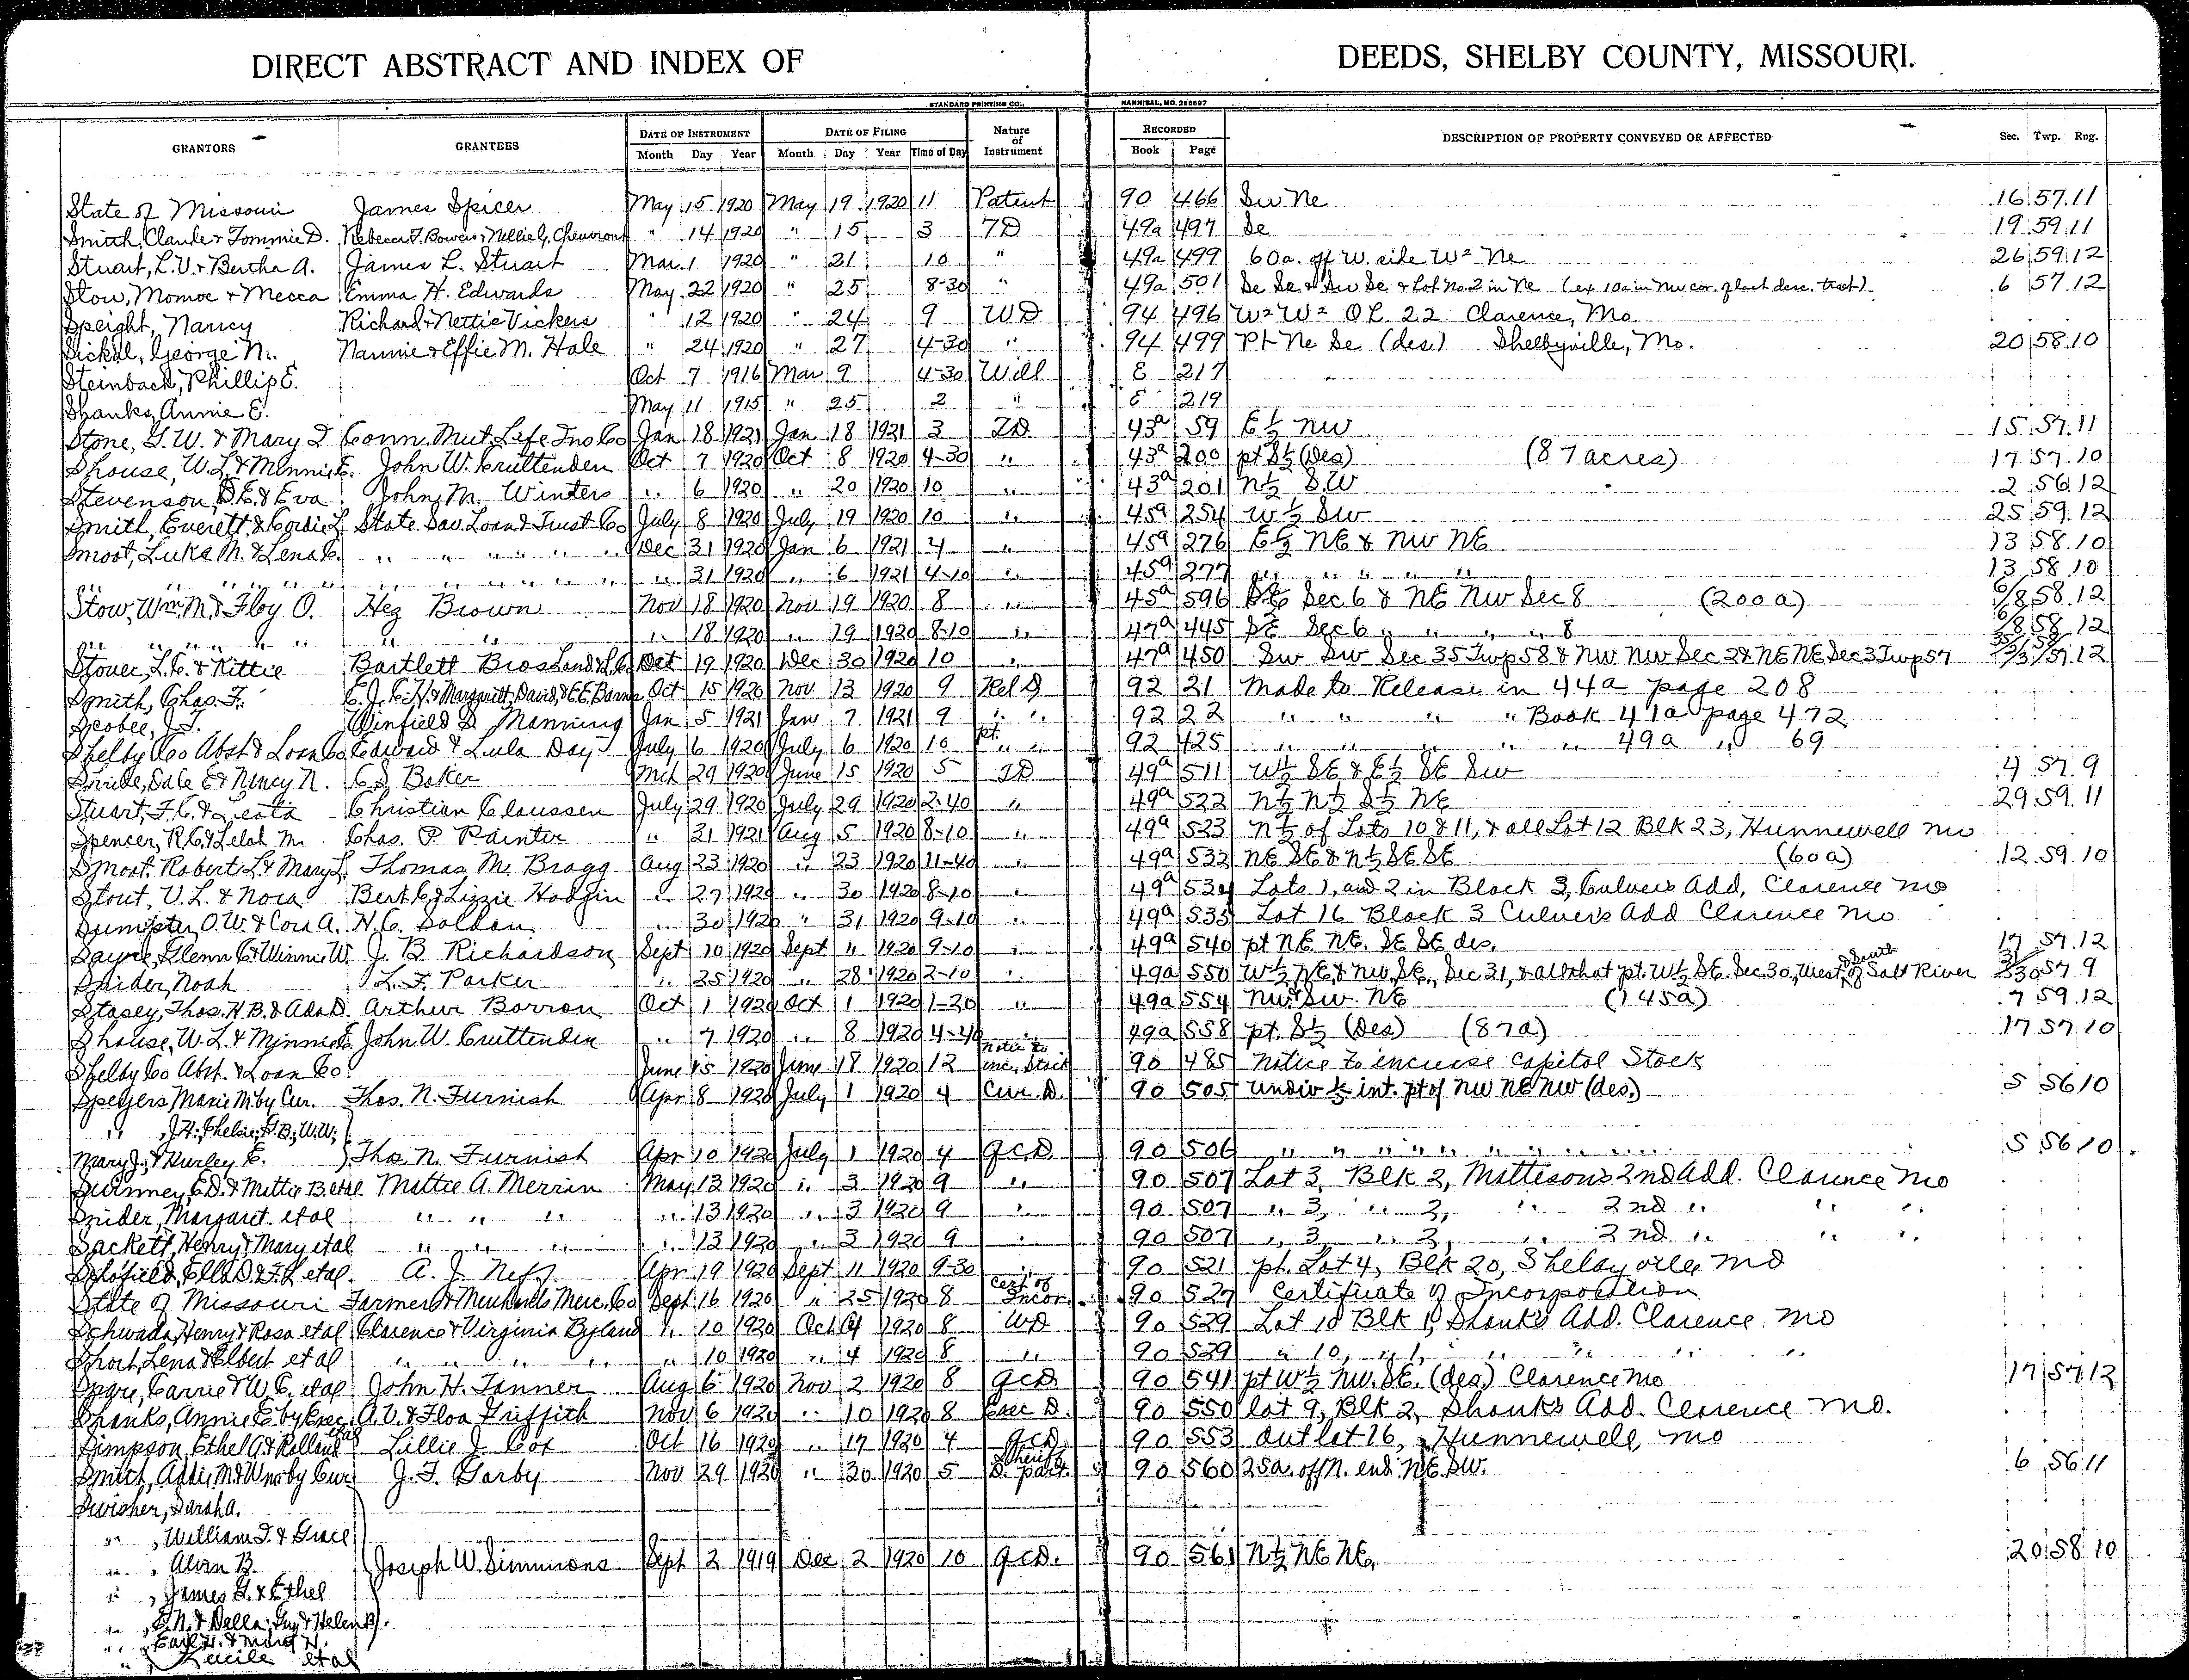 DIRECT ABSTRACT AND INDEX OF DEEDS, SHELBY COUNTY, MISSOURI.
STANDARD PRINTING CO., HANNIBAL, MO. 266697
GRANTORS GRANTEES DATE OF INSTRUMENT DATE OF FILING Nature of Instrument RECORDED DESCRIPTION OF PROPERTY CONVEYED OR AFFECTED Sec. Twp. Rng.
Month Day Year Month Day Year Time of Day Book Page
State of Missouri James Spicer May 15 1920 May 19 1920 11 Patent 90 466 Sw Ne 16 57 11
Smith, Claude & Tommie D. Rebecca F. Bowers & Nellie G. " 14 1920 " 15 3 TD 49a 497 Se 19 59 11
Stuart, L.V. & Bertha A. James L. Stuart Mar 1 1920 " 21 10 " 49a 499 60a. off W. side W² Ne 26 59 12
Stow, Monroe & Mecca Emma H. Edwards May 22 1920 " 25 8-30 " 49a 501 Se Se & Sw Se & Lot No. 2 in Ne (ex 10a in Nw cor. of last desc. tract) 6 57 12
Speight, Nancy Richard & Nettie Vickers " 12 1920 " 24 9 WD 94 496 W² W² OL 22 Clarence, Mo.
Sickal, George N. Nannie & Effie M. Hale " 24 1920 " 27 4-30 " 94 499 Pt Ne Se (des) Shelbyville, Mo. 20 58 10
Steinbach, Phillip E. Oct 7 1916 Mar 9 4-30 Will E 217
Shanks, Annie E. May 11 1915 " 25 2 " E 219
Stone, G.W. & Mary I Conn. Mut Life Ins Co Jan 18 1921 Jan 18 1921 3 TD 43a 59 E½ NW 15 57 11
Shouse, W.L. & Minnie E. John W. Cruttenden Oct 7 1920 Oct 8 1920 4-30 " 43a 200 pt S½ (des) (87 acres) 17 57 10
Stevenson, & Eva John M. Winters " 6 1920 " 20 1920 10 " 43a 201 N½ S.W 2 56 12
Smith, Everett & Cordie L. State Sav. Loan & Trust Co July 8 1920 July 19 1920 10 " 45a 254 W½ SW 25 59 12
Smoot, Luke M. & Lena C. " " " " " " Dec 31 1920 Jan 6 1921 4 " 45a 276 E½ NE & NW NE 13 58 10
" " " " " " " " " " " " 31 1920 " 6 1921 4-10 " 45a 277 " " " " " 13 58 10
Stow, Wm. M. & Floy O. Hez Brown Nov 18 1920 Nov 19 1920 8 " 45a 596 SE Sec 6 & NE NW Sec 8 (200a) 6/8 58 12
" " " " " " " " 18 1920 " 19 1920 8-10 " 47a 445 SE Sec 6 " " " " 8 6/8 58 12
Stover, L.C. & Kittie Bartlett Bros Land & L. Co Oct 19 1920 Dec 30 1920 10 " 47a 450 Sw Sw Sec 35 Twp 58 & NW NW Sec 2 & NE NE Sec 3 Twp 57 12
Smith, Chas. F. Margarett, David, & E.E. Oct 15 1920 Nov 12 1920 9 Rel D 92 21 Made to Release in 44a page 208
Scobee, J.S. Winfield S. Manning Jan 5 1921 Jan 7 1921 9 " " 92 22 " " " " Book 41a page 472
Shelby Co Abst & Loan Co Edward & Lula Day July 6 1920 July 6 1920 10 pt. " " 92 425 " " " " " 49a " 69
Dale E & Nancy N. C.S. Baker Mch 29 1920 June 15 1920 5 TD 49a 511 W½ SE & E½ SE SW 4 57 9
Stuart, F.C. & Leota Christian Claussen July 29 1920 July 29 1920 2-40 " 49a 522 N½ N½ S½ NE 29 59 11
Spencer, R.C. & Lelah M. Chas. P. Painter " 31 1921 Aug 5 1920 8-10 " 49a 523 N½ of Lots 10 & 11, & all Lot 12 Blk 23, Hunnewell Mo
Smoot, Robert L. & Mary L. Thomas M. Bragg Aug 23 1920 " 23 1920 11-40 " 49a 532 NE SE & N½ SE SE (60a) 12 59 10
Stout, V.L. & Nora Bert C. & Lizzie Hodgin " 27 1920 " 30 1920 8-10 " 49a 534 Lots 1, and 2 in Block 3, Culvers Add, Clarence Mo
Sumpter, O.W. & Cora A. N.C. Soldan " 30 1920 " 31 1920 9-10 " 49a 535 Lot 16 Block 3 Culvers Add Clarence Mo
Sayre, Glenn C. & Winnie W. J. B. Richardson Sept 10 1920 Sept 11 1920 9-10 " 49a 540 pt NE NE. SE SE des. 17 57 12
Snider, Noah L.F. Parker " 25 1920 " 28 1920 2-10 " 49a 550 W½ NE & NW SE, Sec 31, & all that pt. W½ SE. Sec 30, West & South of Salt River 31 30 57 9
Stasey, Thos. H.B. & Ada D Arthur Barron Oct 1 1920 Oct 1 1920 1-20 " 49a 554 NW & SW NE (145a) 7 59 12
Shouse, W.L. & Minnie E. John W. Cruttenden " 7 1920 " 8 1920 4-40 " 49a 558 pt. S½ (des) (87a) 17 57 10
Shelby Co Abst. & Loan Co June 15 1920 June 18 1920 12 Notice to inc. Stock 90 485 Notice to encrease Capital Stock
Marie M. by Cur. Thos. N. Furnish Apr 8 1920 July 1 1920 4 Cur. D. 90 505 undiv ½ int. pt of NW NE NW (des.) 5 56 10
" , J.H.; Chelsie; G.B.; W.W.;
Mary J.; & Hurley E. Thos. N. Furnish Apr 10 1920 July 1 1920 4 QCD 90 506 " " " " " " " 5 56 10
E.D. & Mettie B. et al Mattie A. Merrin May 13 1920 " 3 1920 9 " 90 507 Lot 3, Blk 2, Mattison's 2nd Add. Clarence Mo
Snider, Margaret et al " " " " 13 1920 " 3 1920 9 " 90 507 " 3, " 2, " 2nd " " "
Sackett, Henry & Mary et al " " " " 13 1920 " 3 1920 9 " 90 507 " 3, " 2, " 2nd " " "
Schofield, Ella D. & F.L. et al. A. J. Neff Apr 19 1920 Sept 11 1920 9-30 " 90 521 pt. Lot 4, Blk 20, Shelbyville Mo
State of Missouri Farmers & Merchants Merc. Co Sept 16 1920 " 25 1920 8 Cert of Incor. 90 527 Certificate of Incorporation
Schwada, Henry & Rosa et al Clarence & Virginia Byland " 10 1920 Oct 4 1920 8 WD 90 529 Lot 10 Blk 1, Shank's Add. Clarence Mo
Short, Lena & Elbert et al " " " " " 10 1920 " 4 1920 8 " 90 529 " 10, " 1, " " " "
Carrie & W.C. et al John H. Tanner Aug 6 1920 Nov 2 1920 8 QCD 90 541 pt W½ NW. SE. (des) Clarence Mo 17 57 12
Shanks, Annie E by Exec. A.V. & Floa Griffith Nov 6 1920 " 10 1920 8 Exec D. 90 550 lot 9, Blk 2, Shank's Add. Clarence Mo.
Simpson, Ethel G. & Rolland et al Lillie J. Cox Oct 16 1920 " 17 1920 4 QCD 90 553 Out lot 16, Hunnewell, Mo
Smith, Addie M. & by Cur. J. F. Garby Nov 29 1920 " 30 1920 5 Sheriff D. part. 90 560 25a. off N. end NE SW. 6 56 11
Swisher, Sarah A.
" , William T. & Grace
" , Alvin B. Joseph W. Simmons Sept 2 1919 Dec 2 1920 10 QCD. 90 561 N½ NE NE, 20 58 10
" , James G. & Ethel
" , & Della; Guy & Helen B.
" , Earl H. &
" Lucile et al